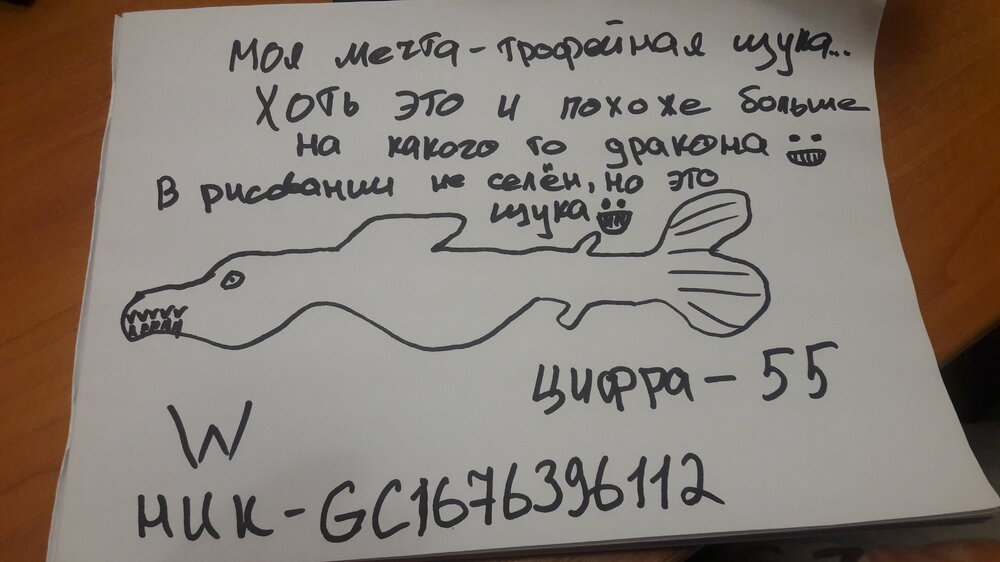 Моя мечта - трофейная щука...
Хоть это и похоже больше
на какого то дракона
В рисовании не селён, но это
щука
цифра - 55
W
ник - GC1676396112